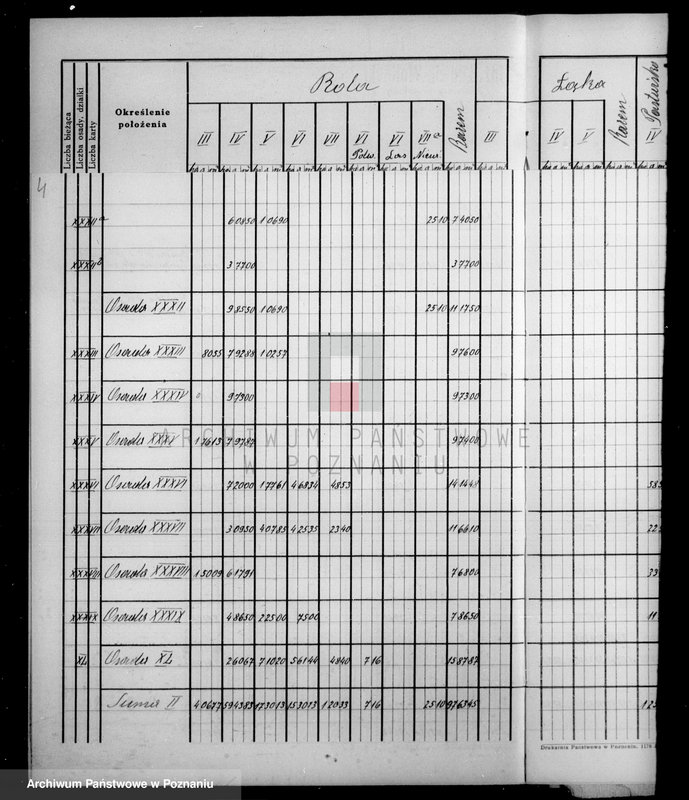 Rola
Łąka
Pastwisko
Liczba bieżąca
Liczba osady, działki
Liczba karty
Określenie położenia
III IV V VI VII VI VI VII a Razem III IV V Razem IV
Las Nieuż.
ha a m²
4
XXXII a 60850 10690 2510 74050
XXXII b 37700 37700
Osada XXXII 98550 10690 2510 111750
XXXIII Osada XXXIII 8055 79288 10257 97600
XXXIV Osada XXXIV 0 97300 97300
XXXV Osada XXXV 17613 79787 97400
XXXVI Osada XXXVI 72000 17761 46834 4853 141448 585
XXXVII Osada XXXVII 30950 40785 42535 2340 116610 225
XXXVIII Osada XXXVIII 15009 61791 76800 33
XXXIX Osada XXXIX 48650 22500 7500 78650 11
XL Osada XL 26067 71020 56144 4840 716 158787
Suma II 40677 594383 173013 153013 12033 716 2510 976345 125
ARCHIWUM PAŃSTWOWE
W POZNANIU
Drukarnia Państwowa w Poznaniu.
Archiwum Państwowe w Poznaniu